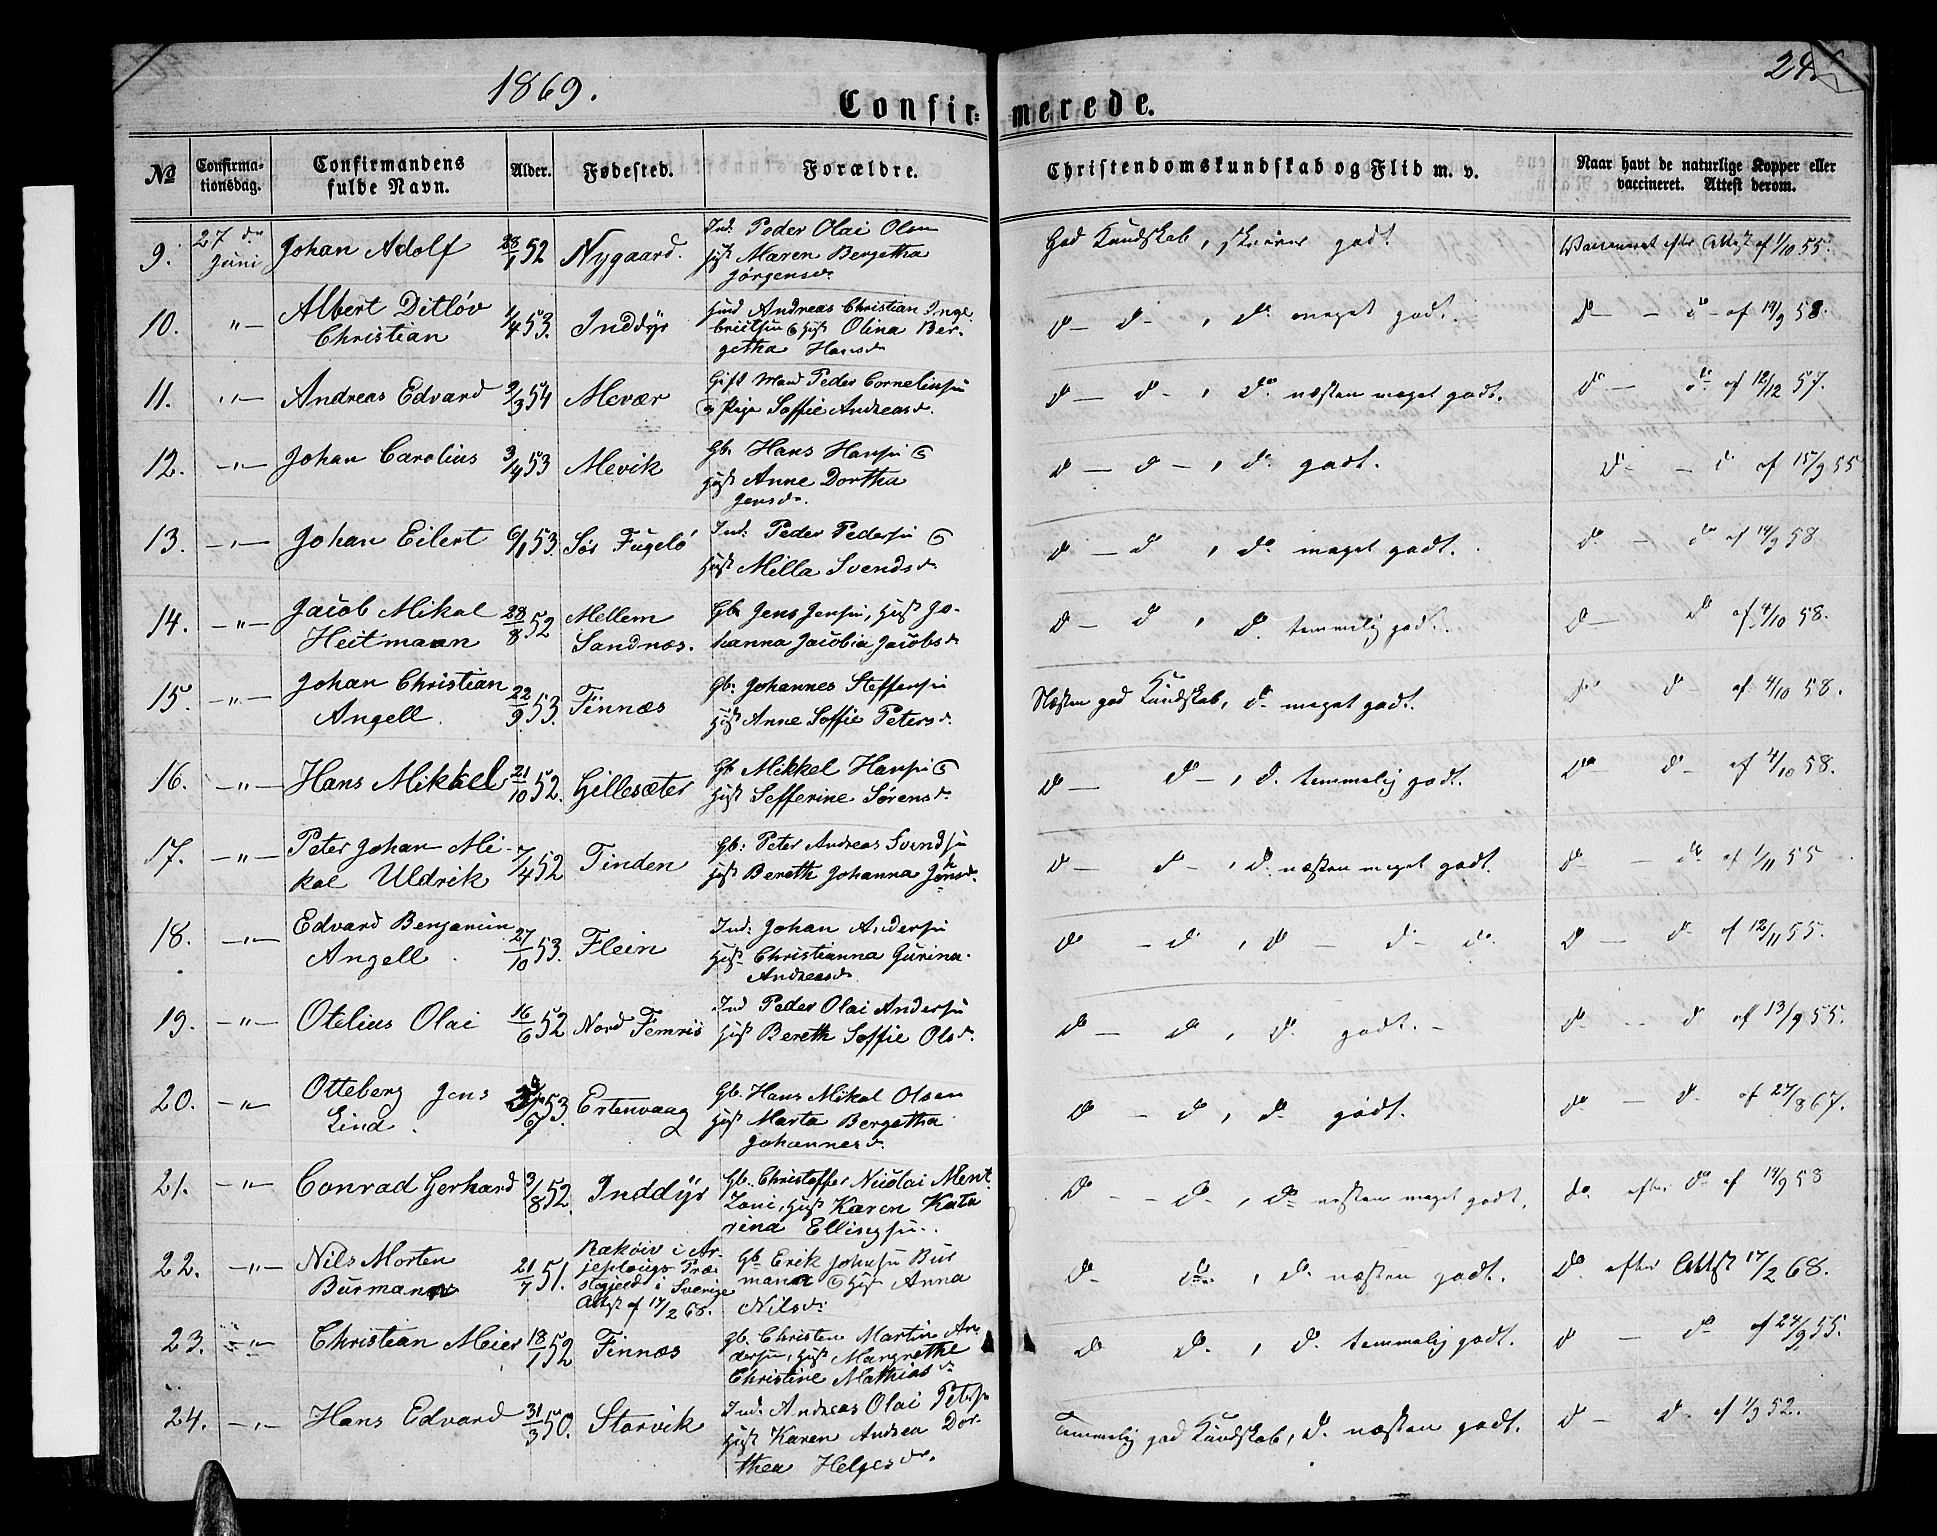 1869.
24
Confir=
merede.
No
Confirma-
tionsdag.
Confirmandens
fulde Navn.
Alder.
Fødested.
Forældre.
Christendomskundskab og Flid m. v.
Naar havt de naturlige Kopper eller
vaccineret. Attest derom.
9. 27 de Juni Johan Adolf 28/1 52 Nygaard. Ind: Peder Olai Olsen
Hust Maren Bergetha
Jørgensdr
God Kundskab, skriver godt. Vaccineret efter Attest af 1/10 55.
10. " Albert Ditløv
Christian 1/4 53. Inddyr Ind Andreas Christian Inge
britsen & Hust Olina Ber-
getha Hansdr
do - do -, do meget godt. do - do - af 14/9 58.
11. " Andreas Edvard 2/3 54 Mevær Gift Mand Peder Cornelius
& Pige Soffie Andreasdr.
do - do -, do næsten meget godt. do - do af 12/12 57.
12. " Johan Carolius 3/4 53 Mevik Gb. Hans Hansen &
Hust Anne Dorthea
Jensdr.
do - do -, do godt. do - do af 15/9 55
13. " Johan Eilert 6/1 53. Sør Fugelö Ind: Peder Pedersen &
Hust Milla Svendsdr
do - do, do meget godt. do - do af 14/9 58.
14. " Jacob Mikal
Heitmann 28/8 52 Mellem
Sandnæs. Gb. Jens Jensen, Hust Jo-
hanna Jacobia Jacobsdr
do - do, do temmelig godt. do do af 4/10 58.
15. " Johan Christian
Angell. 22/9 53. Finnæs Gb: Johannes Steffensen
Hust Anne Soffie Petersdr.
Næsten god Kundskab, do meget godt. do do - af 4/10 58.
16. " Hans Mikkel 21/10 52. Gillesæter Gb Mikkel Hansen &
Hust Sefferine Sørensdr
do - do -, do temmelig godt. do - do - af 4/10 58.
17. " Peter Johan Mi-
kal Uldrik 7/4 52 Tinden Gb: Peter Andreas Svendsen
Hust Bereth Johanna Jensdr.
do - do -, do næsten meget godt. do - do af 1/11 55
18. " Edvard Benjamin
Angell. 27/10 53. Flein Ind: Johan Andersen
Hust Christianna Gurina
Andreasdr
do - do, do - do - do do - do af 12/11 55.
19. " Otelius Olai 16/6 52 Nord Femris Ind Peder Olai Andersen
Hust Bereth Soffie Olsdr.
do - do, do godt. - do - do af 13/9 55.
20. " Otteberg Jens
Lind. /6 53. Ertenvaag Gb. Hans Mikal Olsen
Hust Marta Bergetha
Johannesdr
do - do, do godt. do - do af 27/8 67.
21. " Conrad Gerhard 3/8 52. Inddyr Gb. Christoffer Nicolai Ment
Zoni, Hust Karen Kata
rina Ellingsen.
do - do, do næsten meget godt. do efter do af 14/9 58
22. " Nils Morten
Burmann 21/7 51. Rækøiv i Ar-
jeplougs Præ-
stegjeld i Sverige
Attest af 17/2 68. Gb Erik Johnsen Bur
mann & Hust Anna
Nilsdr
do do, do næsten godt. do efter Attest 17/2 68.
23. " Christian Meier 18/1 52 Finnæs Gb. Christen Martin An-
dersen, Hust Margrethe
Christine Mathiasdr
do do, do temmelig godt. do - do af 24/9 55.
24. " Hans Edvard 31/3 50. Storvik Ind: Andreas Olai Petersen
Hust Karen Andrea Dor-
thea Helgesdr.
Temmelig god Kundskab, do næsten godt. do - do af 1/9 52.